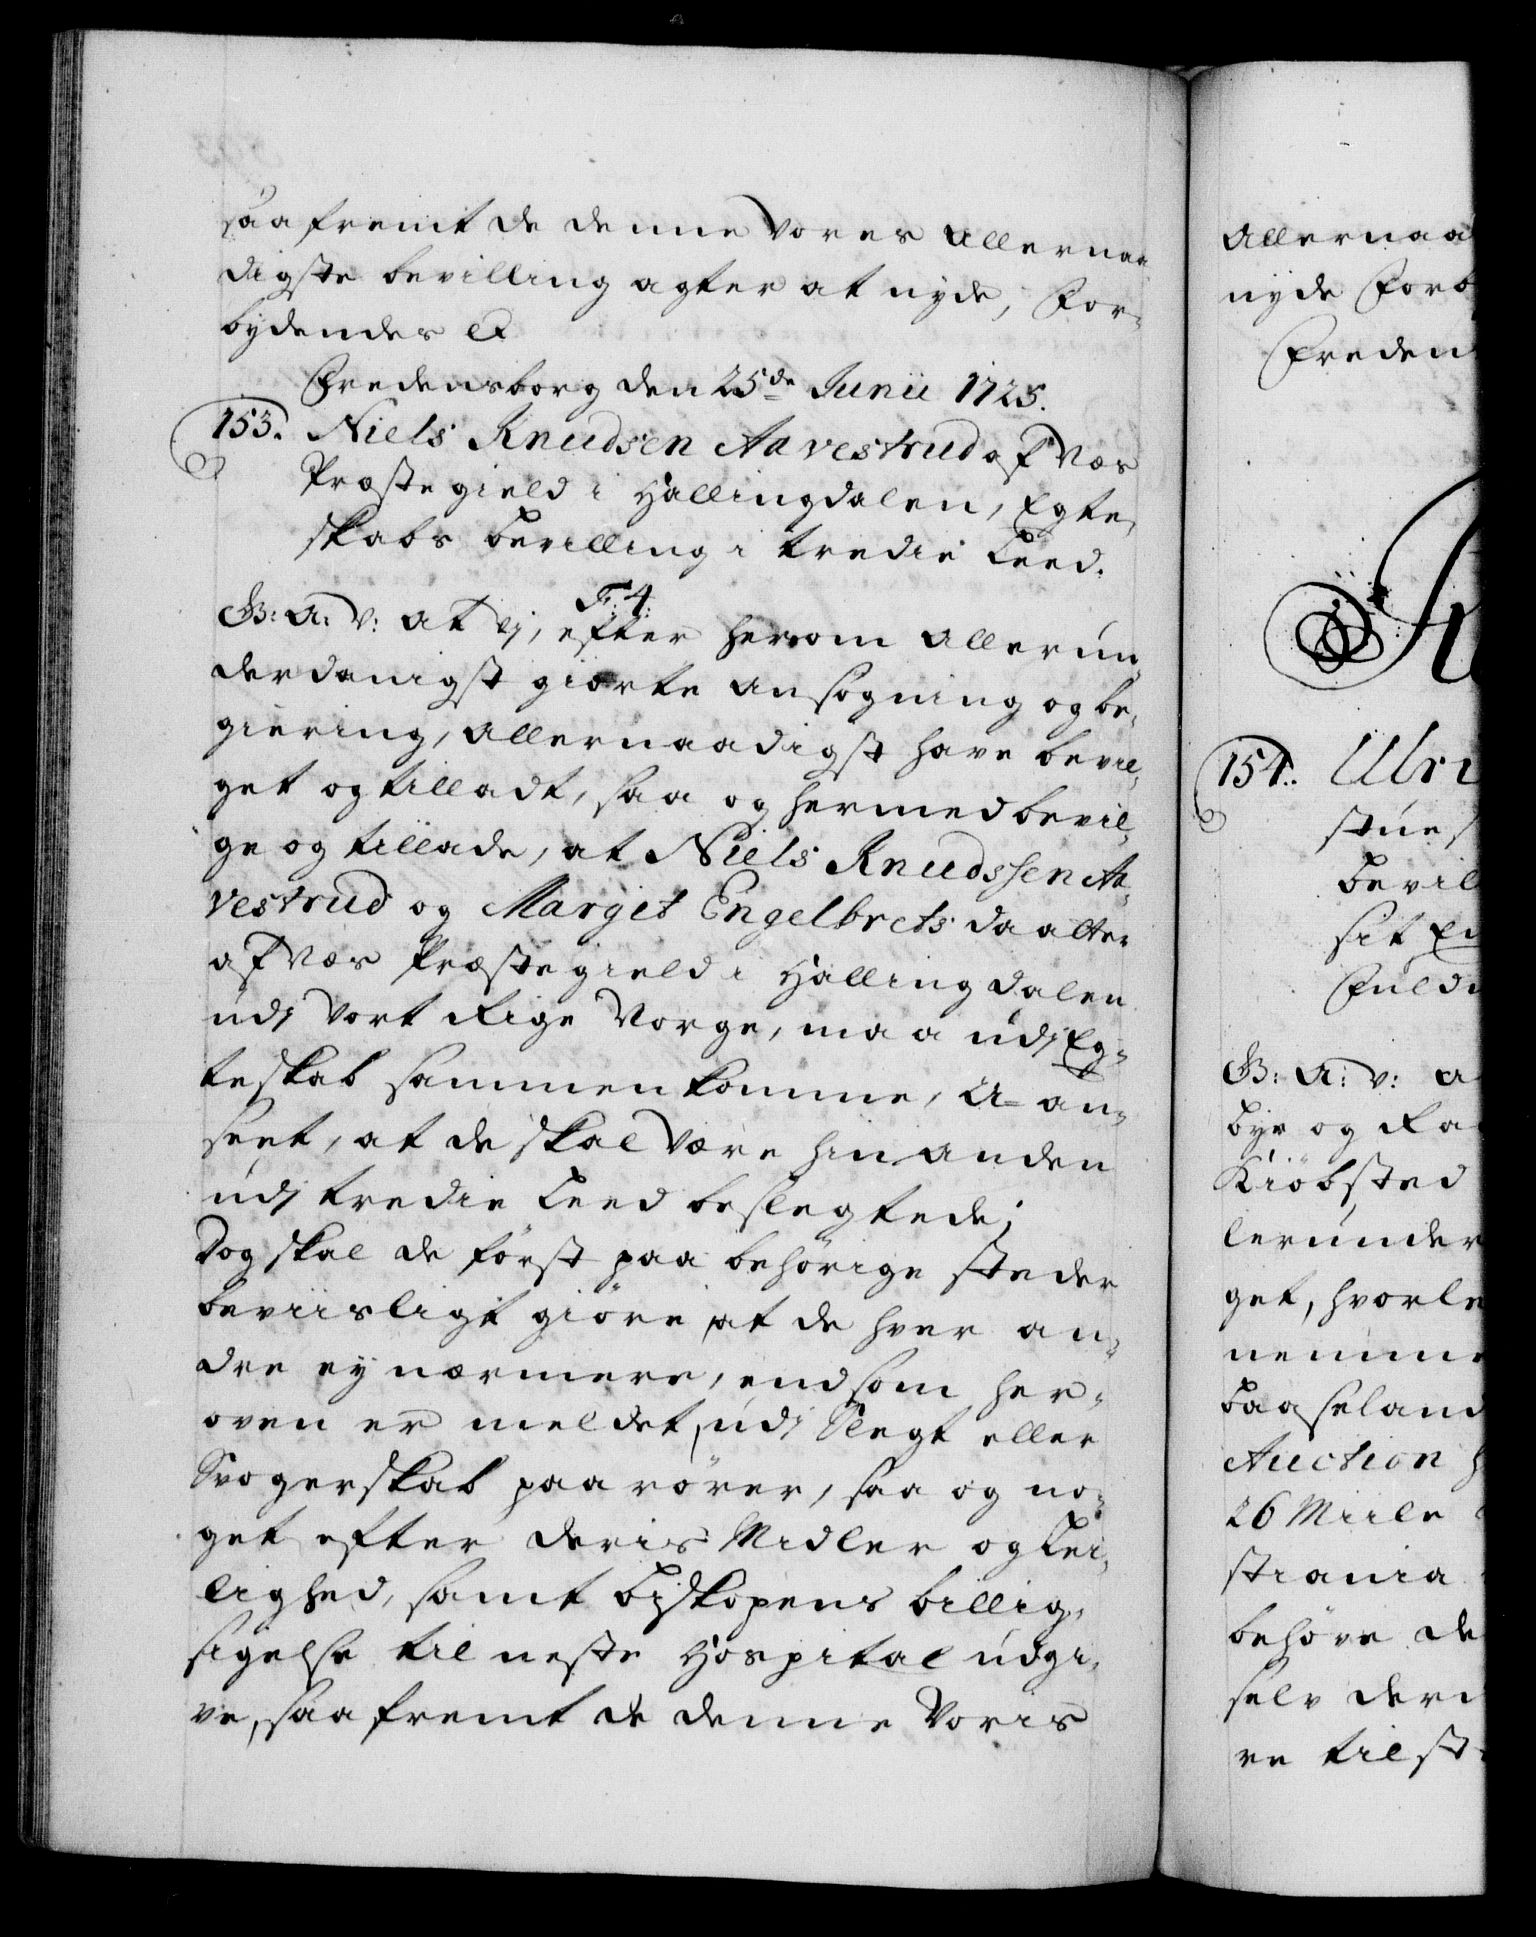 saafremt de denne Vores allernaa-
digste bevilling agter at nyde, For-
bydendes &
Fredensborg den 25de Junii 1725.
153. Niels Knudsen Aavestrud af Næs
Præstegield i Hallingdalen, Egte-
skabs bevilling i tredie Leed.
F: 4:
G: A: V: at Vj, efter herom allerun-
derdanigst giorte ansøgning og be-
giering, allernaadigst have bevil-
get og tilladt, saa og hermed bevil-
ge og tillade, at Niels Knudssen Aa-
vestrud og Margit Engelbrets daatter
af Næs Præstegield i Hallingdalen
udj Vort Rige Norge, maa udj Eg-
teskab sammenkomme, U-an-
seet, at de skal Være hinanden
udj tredie Leed beslegtede;
Dog skal de først paa behørige steder
beviisligt giøre, at de hver an-
dre ey nærmere, end som her-
oven er meldet, udj Slegt eller
Svogerskab paarører, saa og no-
get efter deris Midler og Lei-
lighed, samt biskopens billig-
sigelse til neste Hospital udgi-
ve, saafremt de denne Voris
allernaad
nyde Forb
Fredens
154. Ulri
stue
bevil
sit En
Fuld
G: A: V: a
byr og Ra
Kiøbsted
lerunder
get, hvorle
nemme
baaseland
Auction h
26 Miile
stiania
behøve de
selv der
re tilst